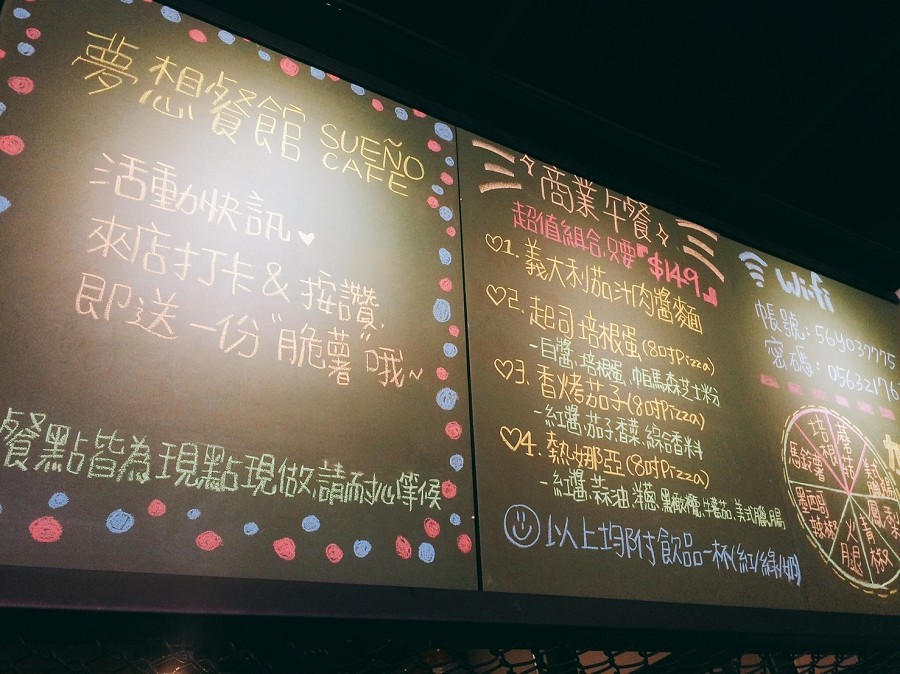 夢想餐館 SUEÑO
CAFE
活動快訊♥
來店打卡&按讚,
即送一份"脆薯"哦~
餐點皆為現點現做,請耐心等候
商業午餐
超值組合,只要『$149』
♡1. 義大利茄汁肉醬麵
♡2. 起司培根蛋(8吋Pizza)
-白醬.培根蛋.帕馬森芝士粉
♡3. 香烤茄子(8吋Pizza)
-紅醬.茄子.香菜.綜合香料
♡4. 熱娜亞(8吋Pizza)
-紅醬.蒜油.洋蔥.黑橄欖.牛蕃茄.美式臘腸
以上均附飲品一杯(紅/綠/奶)
Wifi
帳號:56Y037775
密碼:05632176
培根
蘑菇
馬鈴薯
鳳梨
墨西哥辣椒
火腿
青椒